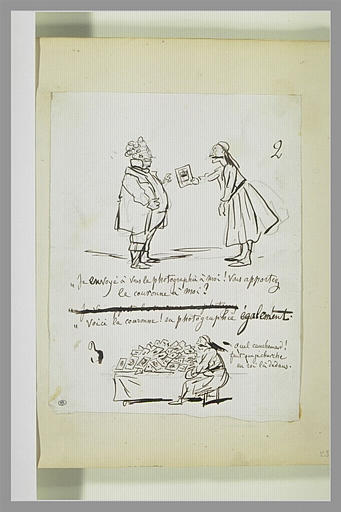 2
„ Je envoyé à vous la photographie à moi ! Vous apportez
la couronne à moi ?
„ voici la couronne ! en photographie également.
3
quel cauchemard !
faut que je cherche
un roi là dedans.